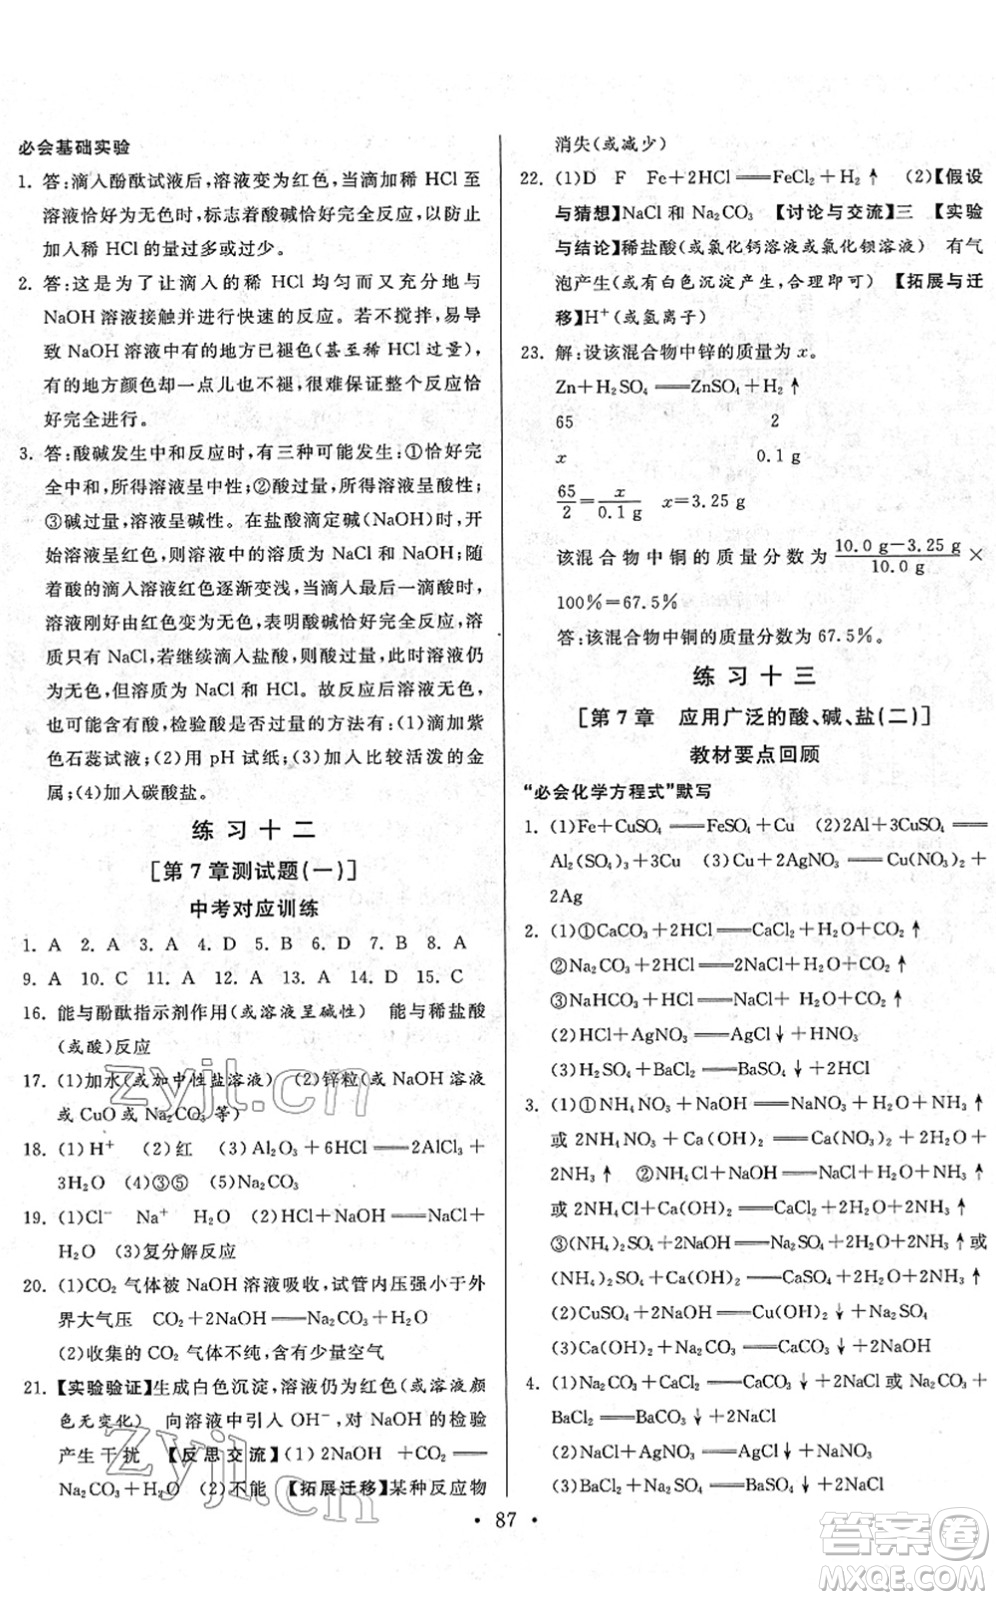 必会基础实验
1. 答:滴入酚酞试液后,溶液变为红色,当滴加稀 HCl 至
溶液恰好为无色时,标志着酸碱恰好完全反应,以防止
加入稀 HCl 的量过多或过少。
2. 答:这是为了让滴入的稀 HCl 均匀而又充分地与
NaOH 溶液接触并进行快速的反应。若不搅拌,易导
致 NaOH 溶液中有的地方已褪色(甚至稀 HCl 过量),
有的地方颜色却一点儿也不褪,很难保证整个反应恰
好完全进行。
3. 答:酸碱发生中和反应时,有三种可能发生:①恰好完
全中和,所得溶液呈中性;②酸过量,所得溶液呈酸性;
③碱过量,溶液呈碱性。在盐酸滴定碱(NaOH)时,开
始溶液呈红色,则溶液中的溶质为 NaCl 和 NaOH;随
着酸的滴入溶液红色逐渐变浅,当最后一滴酸滴入,
溶液刚好由红色变为无色,表明酸碱恰好完全反应,溶
质只有 NaCl,若继续滴入盐酸,与前者相比,溶液仍为
无色,但溶质为 NaCl 和 HCl。故反应后溶液呈无色,
也可能含有酸,检验酸是否过量的方法有:(1)滴加紫
色石蕊试液;(2)用 pH 试纸;(3)加入比较活泼的金
属;(4)加入碳酸盐。
练习十二
[第 7 章测试题(一)]
中考对应训练
1. A 2. A 3. A 4. D 5. B 6. D 7. B 8. A
9. A 10. C 11. A 12. A 13. A 14. D 15. C
16. 能与酚酞指示剂作用(或溶液呈碱性) 能与稀盐酸
(或酸)反应
17. (1)加水(或加中性盐溶液) (2)锌粒(或 NaOH 溶液
或 CuO 或 Na₂CO₃ 等)
18. (1)H⁺ (2)红 (3)Al₂O₃+6HCl══2AlCl₃+
3H₂O (4)③⑤ (5)Na₂CO₃
19. (1)Cl⁻ Na⁺ H₂O (2)HCl+NaOH══NaCl+
H₂O (3)复分解反应
20. (1)CO₂ 气体被 NaOH 溶液吸收,试管内压强小于外
界大气压 CO₂+2NaOH══Na₂CO₃+H₂O
(2)收集的 CO₂ 气体不纯,含有少量空气
21. 【实验验证】生成白色沉淀,溶液仍为红色(或溶液颜
色无变化) 向溶液中引入 OH⁻,对 NaOH 的检验
产生干扰 【反思交流】(1)2NaOH +CO₂══
Na₂CO₃+H₂O (2)不能 【拓展迁移】某种反应物
消失(或减少)
22. (1)D F Fe+2HCl══FeCl₂+H₂↑ (2)【假设
与猜想】NaCl 和 Na₂CO₃ 【讨论与交流】三 【实验
与结论】稀盐酸(或氯化钙溶液或氯化钡溶液) 有气
泡产生(或有白色沉淀产生,合理即可) 【拓展与迁
移】H⁺(或氢离子)
23. 解:设该混合物中锌的质量为 x。
Zn+H₂SO₄══ZnSO₄+H₂↑
65 2
x 0.1 g
65/2=x/0.1 g x=3.25 g
该混合物中铜的质量分数为 (10.0 g−3.25 g)/10.0 g ×
100%=67.5%
答:该混合物中铜的质量分数为 67.5%。
练习十三
[第 7 章 应用广泛的酸、碱、盐(二)]
教材要点回顾
“必会化学方程式”默写
1. (1)Fe+CuSO₄══FeSO₄+Cu (2)2Al+3CuSO₄══
Al₂(SO₄)₃+3Cu (3)Cu+2AgNO₃══Cu(NO₃)₂+
2Ag
2. (1)①CaCO₃+2HCl══CaCl₂+H₂O+CO₂↑
②Na₂CO₃+2HCl══2NaCl+H₂O+CO₂↑
③NaHCO₃+HCl══NaCl+H₂O+CO₂↑
(2)HCl+AgNO₃══AgCl↓+HNO₃
(3)H₂SO₄+BaCl₂══BaSO₄↓+2HCl
3. (1)①NH₄NO₃+NaOH══NaNO₃+H₂O+NH₃↑
或 2NH₄NO₃+Ca(OH)₂══Ca(NO₃)₂+2H₂O+
2NH₃↑ ②NH₄Cl+NaOH══NaCl+H₂O+NH₃↑
或 2NH₄Cl+Ca(OH)₂══CaCl₂+2H₂O+2NH₃↑
③(NH₄)₂SO₄+2NaOH══Na₂SO₄+2H₂O+2NH₃↑或
(NH₄)₂SO₄+Ca(OH)₂══CaSO₄+2H₂O+2NH₃↑
(2)CuSO₄+2NaOH══Cu(OH)₂↓+Na₂SO₄
(3)Ca(OH)₂+Na₂CO₃══CaCO₃↓+2NaOH
4. (1)Na₂CO₃+CaCl₂══CaCO₃↓+2NaCl或Na₂CO₃+
BaCl₂══BaCO₃↓+2NaCl
(2)NaCl+AgNO₃══AgCl↓+NaNO₃
(3)BaCl₂+Na₂SO₄══BaSO₄↓+2NaCl
• 87 •
zyjl.cn
zyjl.cn
答案圈
MXQE.COM